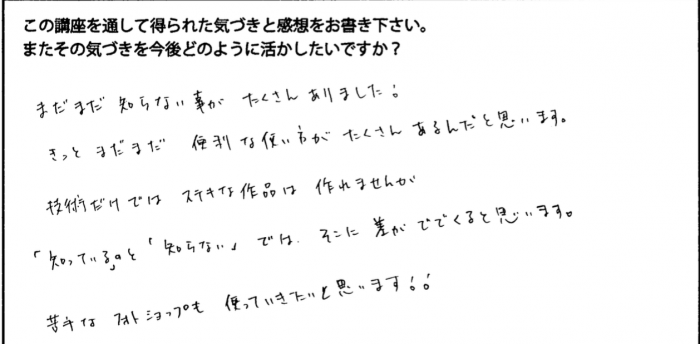 この講座を通して得られた気づきと感想をお書き下さい。
またその気づきを今後どのように活かしたいですか？
まだまだ 知らない事が たくさん ありました！
きっと まだまだ 便利な使い方が たくさん あるんだと思います。
技術だけでは ステキな作品は 作れませんが
「知っている」と「知らない」では、そこに 差が でてくると思います。
苦手な フォトショップも 使っていきたいと思います！！